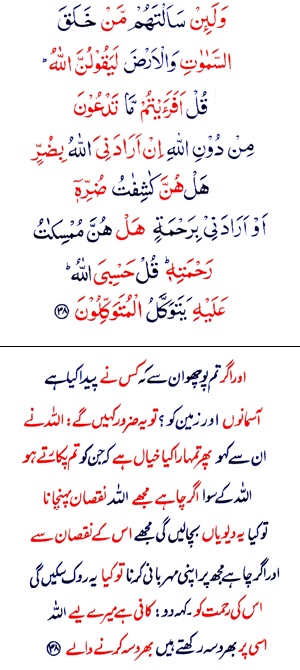 وَلَئِنْ سَاَلْتَهُمْ مَّنْ خَلَقَ
السَّمٰوٰتِ وَالْاَرْضَ لَيَقُوْلُنَّ اللّٰهُ ؕ
قُلْ اَفَرَءَيْتُمْ مَّا تَدْعُوْنَ
مِنْ دُوْنِ اللّٰهِ اِنْ اَرَادَنِىَ اللّٰهُ بِضُرٍّ
هَلْ هُنَّ كٰشِفٰتُ ضُرِّهٖۤ
اَوْ اَرَادَنِىْ بِرَحْمَةٍ هَلْ هُنَّ مُمْسِكٰتُ
رَحْمَتِهٖ ؕ قُلْ حَسْبِىَ اللّٰهُ ؕ
عَلَيْهِ يَتَوَكَّلُ الْمُتَوَكِّلُوْنَ ﴿۳۸﴾
اور اگر تم پوچھو ان سے کہ کس نے پیدا کیا ہے
آسمانوں اور زمین کو ؟ تو یہ ضرور کہیں گے : اللہ نے
ان سے کہو پھر تمہارا کیا خیال ہے کہ جن کو تم پکارتے ہو
اللہ کے سوا اگر چاہے مجھے اللہ نقصان پہنچانا
تو کیا یہ دیویاں بچالیں گی مجھے اس کے نقصان سے
اور اگر چاہے مجھ پر اپنی مہربانی کرنا تو کیا یہ روک سکیں گی
اس کی رحمت کو ۔ کہہ دو : کافی ہے میرے لیے اللہ
اسی پر بھروسہ رکھتے ہیں بھروسہ کرنے والے ﴿۳۸﴾